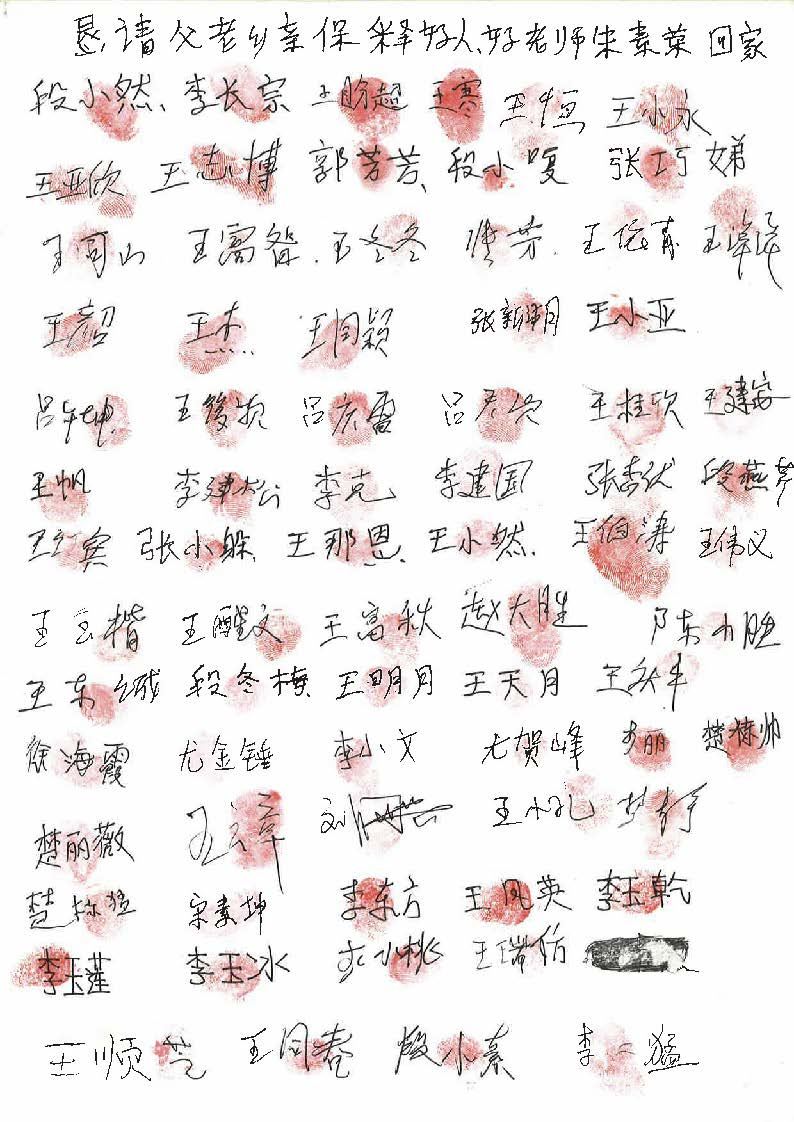 恳请父老乡亲保释好人、好老师朱素荣回家
段小然、李长宗 王盼超 王寒 王恒 王小永
王亚欣 王志博 郭芳芳、段小嗄 张巧娣
王同山 王富智 王冬冬 芳 王俊青
王韶 王杰 王同颖 张新明 王小亚
吕 王俊 吕庆雷 吕 王桂欣 王建安
王帆 李建松 李克 李建国 张 段燕芳
王 宾 张小躲 王那恩 王小然 王伯涛 王伟义
王玉楷 王醒文 王富秋 赵大胜 陈东胜
王东城 段冬梅 王明月 王天月 王跃丰
徐海霞 尤金锤 李小文 尤贺峰 丽 楚 帅
楚丽薇 王 章 刘 王小孔 静
楚 猛 宋素坤 李东方 王凤英 李玉乾
李玉莲 李玉冰 小桃 王瑞
王顺芝 王同春 段小素 李二猛